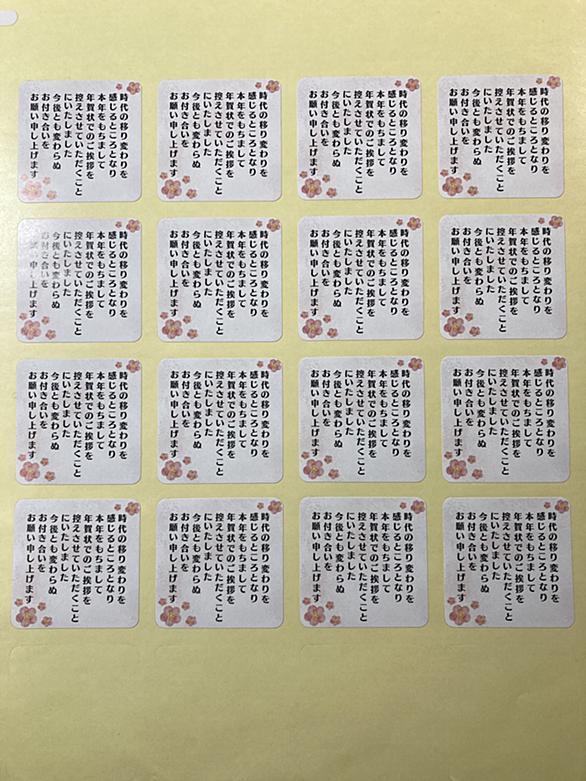 時代の移り変わりを
感じるところとなり
本年をもちまして
年賀状でのご挨拶を
控えさせていただくこと
にいたしました
今後とも変わらぬ
お付き合いを
お願い申し上げます
時代の移り変わりを
感じるところとなり
本年をもちまして
年賀状でのご挨拶を
控えさせていただくこと
にいたしました
今後とも変わらぬ
お付き合いを
お願い申し上げます
時代の移り変わりを
感じるところとなり
本年をもちまして
年賀状でのご挨拶を
控えさせていただくこと
にいたしました
今後とも変わらぬ
お付き合いを
お願い申し上げます
時代の移り変わりを
感じるところとなり
本年をもちまして
年賀状でのご挨拶を
控えさせていただくこと
にいたしました
今後とも変わらぬ
お付き合いを
お願い申し上げます
時代の移り変わりを
感じるところとなり
本年をもちまして
年賀状でのご挨拶を
控えさせていただくこと
にいたしました
今後とも変わらぬ
お付き合いを
お願い申し上げます
時代の移り変わりを
感じるところとなり
本年をもちまして
年賀状でのご挨拶を
控えさせていただくこと
にいたしました
今後とも変わらぬ
お付き合いを
お願い申し上げます
時代の移り変わりを
感じるところとなり
本年をもちまして
年賀状でのご挨拶を
控えさせていただくこと
にいたしました
今後とも変わらぬ
お付き合いを
お願い申し上げます
時代の移り変わりを
感じるところとなり
本年をもちまして
年賀状でのご挨拶を
控えさせていただくこと
にいたしました
今後とも変わらぬ
お付き合いを
お願い申し上げます
時代の移り変わりを
感じるところとなり
本年をもちまして
年賀状でのご挨拶を
控えさせていただくこと
にいたしました
今後とも変わらぬ
お付き合いを
お願い申し上げます
時代の移り変わりを
感じるところとなり
本年をもちまして
年賀状でのご挨拶を
控えさせていただくこと
にいたしました
今後とも変わらぬ
お付き合いを
お願い申し上げます
時代の移り変わりを
感じるところとなり
本年をもちまして
年賀状でのご挨拶を
控えさせていただくこと
にいたしました
今後とも変わらぬ
お付き合いを
お願い申し上げます
時代の移り変わりを
感じるところとなり
本年をもちまして
年賀状でのご挨拶を
控えさせていただくこと
にいたしました
今後とも変わらぬ
お付き合いを
お願い申し上げます
時代の移り変わりを
感じるところとなり
本年をもちまして
年賀状でのご挨拶を
控えさせていただくこと
にいたしました
今後とも変わらぬ
お付き合いを
お願い申し上げます
時代の移り変わりを
感じるところとなり
本年をもちまして
年賀状でのご挨拶を
控えさせていただくこと
にいたしました
今後とも変わらぬ
お付き合いを
お願い申し上げます
時代の移り変わりを
感じるところとなり
本年をもちまして
年賀状でのご挨拶を
控えさせていただくこと
にいたしました
今後とも変わらぬ
お付き合いを
お願い申し上げます
時代の移り変わりを
感じるところとなり
本年をもちまして
年賀状でのご挨拶を
控えさせていただくこと
にいたしました
今後とも変わらぬ
お付き合いを
お願い申し上げます